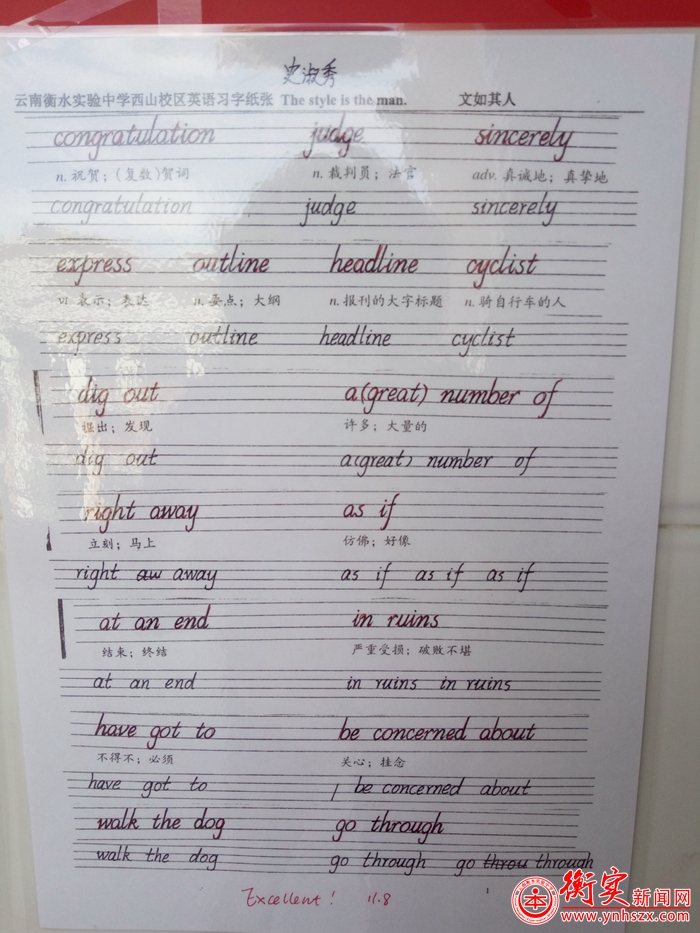 史淑秀
云南衡水实验中学西山校区英语习字纸张 The style is the man. 文如其人
congratulation judge sincerely
n. 祝贺；(复数)贺词 n. 裁判员；法官 adv. 真诚地；真挚地
congratulation judge sincerely
express outline headline cyclist
vt 表示；表达 n. 要点；大纲 n. 报刊的大字标题 n. 骑自行车的人
express outline headline cyclist
dig out a(great) number of
掘出；发现 许多；大量的
dig out a(great) number of
right away as if
立刻；马上 仿佛；好像
right aw away as if as if as if
at an end in ruins
结束；终结 严重受损；破败不堪
at an end in ruins in ruins
have got to be concerned about
不得不；必须 关心；挂念
have got to be concerned about
walk the dog go through
walk the dog go through go throu through
Excellent! 11.8
衡实新闻网
www.ynhszx.com